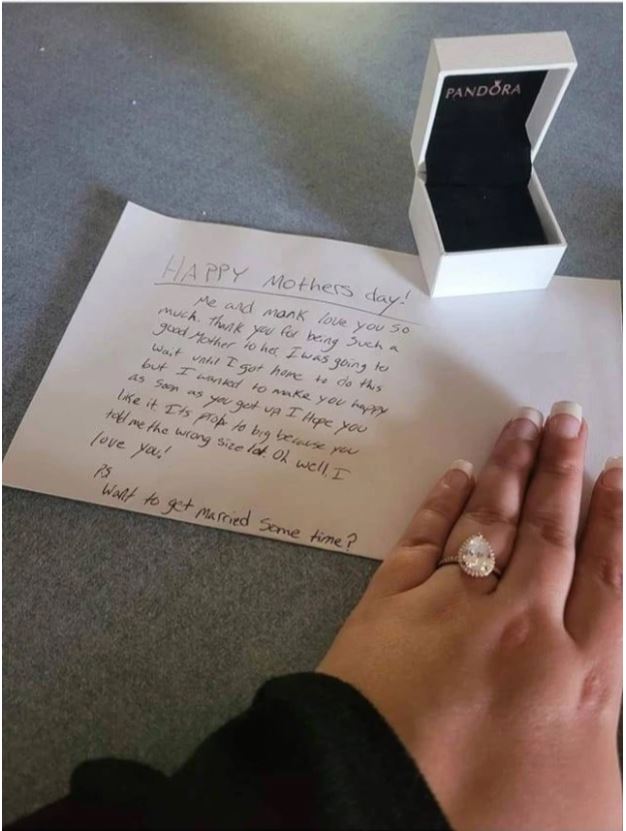 PANDORA
HAPPY Mothers day!
Me and monk love you so
much. Thank you for being such a
good Mother to her, I was going to
wait until I got home to do this
but I wanted to make you happy
as soon as you get up I Hope you
like it. Its prob to big because you
told me the wrong size lol. Oh well, I
love you!
PS
Want to get married some time?